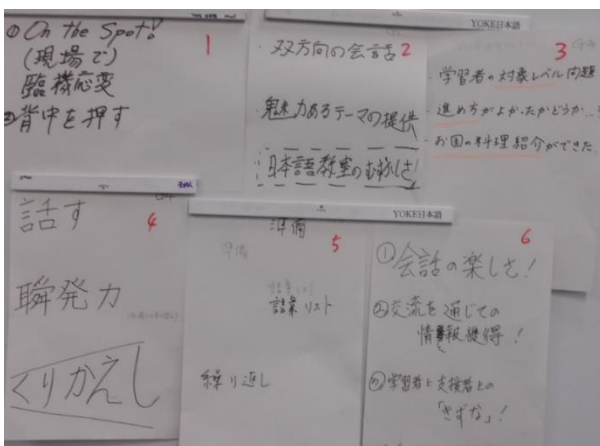 ① On the Spot!
(現場で)
臨機応変
②背中を押す
1
YOKE日本語
・双方向の会話
2
・魅力あるテーマの提供
日本語教室のむずかしさ!
3
・学習者の対象レベル問題
・進め方がよかったかどうか…
・お国の料理紹介ができた
4
話す
瞬発力
くりかえし
YOKE日本語
5
準備
準備
語彙リスト
語彙リスト
繰り返し
6
①会話の楽しさ!
②交流を通じての
情報獲得!
③学習者と支援者との
「きずな」!